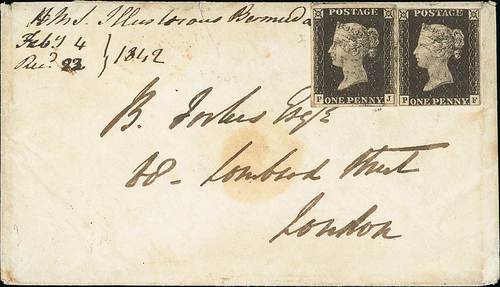 H.M.S. Illustrious Bermuda
Feby 4
Recd 22 } 1842
POSTAGE
P J
ONE PENNY
POSTAGE
P F
ONE PENNY
B. Forbes Esqre
68 - Lombard Street
London